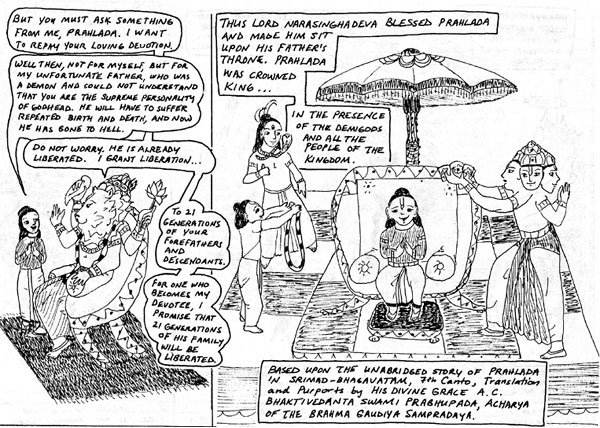 BUT YOU MUST ASK SOMETHING
FROM ME, PRAHLADA. I WANT
TO REPAY YOUR LOVING DEVOTION.
WELL THEN, NOT FOR MYSELF, BUT FOR
MY UNFORTUNATE FATHER, WHO WAS
A DEMON AND COULD NOT UNDERSTAND
THAT YOU ARE THE SUPREME PERSONALITY
OF GODHEAD. HE WILL HAVE TO SUFFER
REPEATED BIRTH AND DEATH, AND NOW
HE HAS GONE TO HELL.
DO NOT WORRY. HE IS ALREADY
LIBERATED. I GRANT LIBERATION...
TO 21
GENERATIONS
OF YOUR
FOREFATHERS
AND
DESCENDANTS.
FOR ONE WHO
BECOMES MY
DEVOTEE, I
PROMISE THAT
21 GENERATIONS
OF HIS FAMILY
WILL BE
LIBERATED.
THUS LORD NARASINGHADEVA BLESSED PRAHLADA
AND MADE HIM SIT
UPON HIS FATHER'S
THRONE. PRAHLADA
WAS CROWNED
KING...
IN THE PRESENCE
OF THE DEMIGODS
AND ALL THE
PEOPLE OF THE
KINGDOM.
BASED UPON THE UNABRIDGED STORY OF PRAHLADA
IN SRIMAD-BHAGAVATAM, 7th Canto, Translation
and Purports by HIS DIVINE GRACE A.C.
BHAKTIVEDANTA SWAMI PRABHUPADA, ACHARYA
OF THE BRAHMA GAUDIYA SAMPRADAYA.